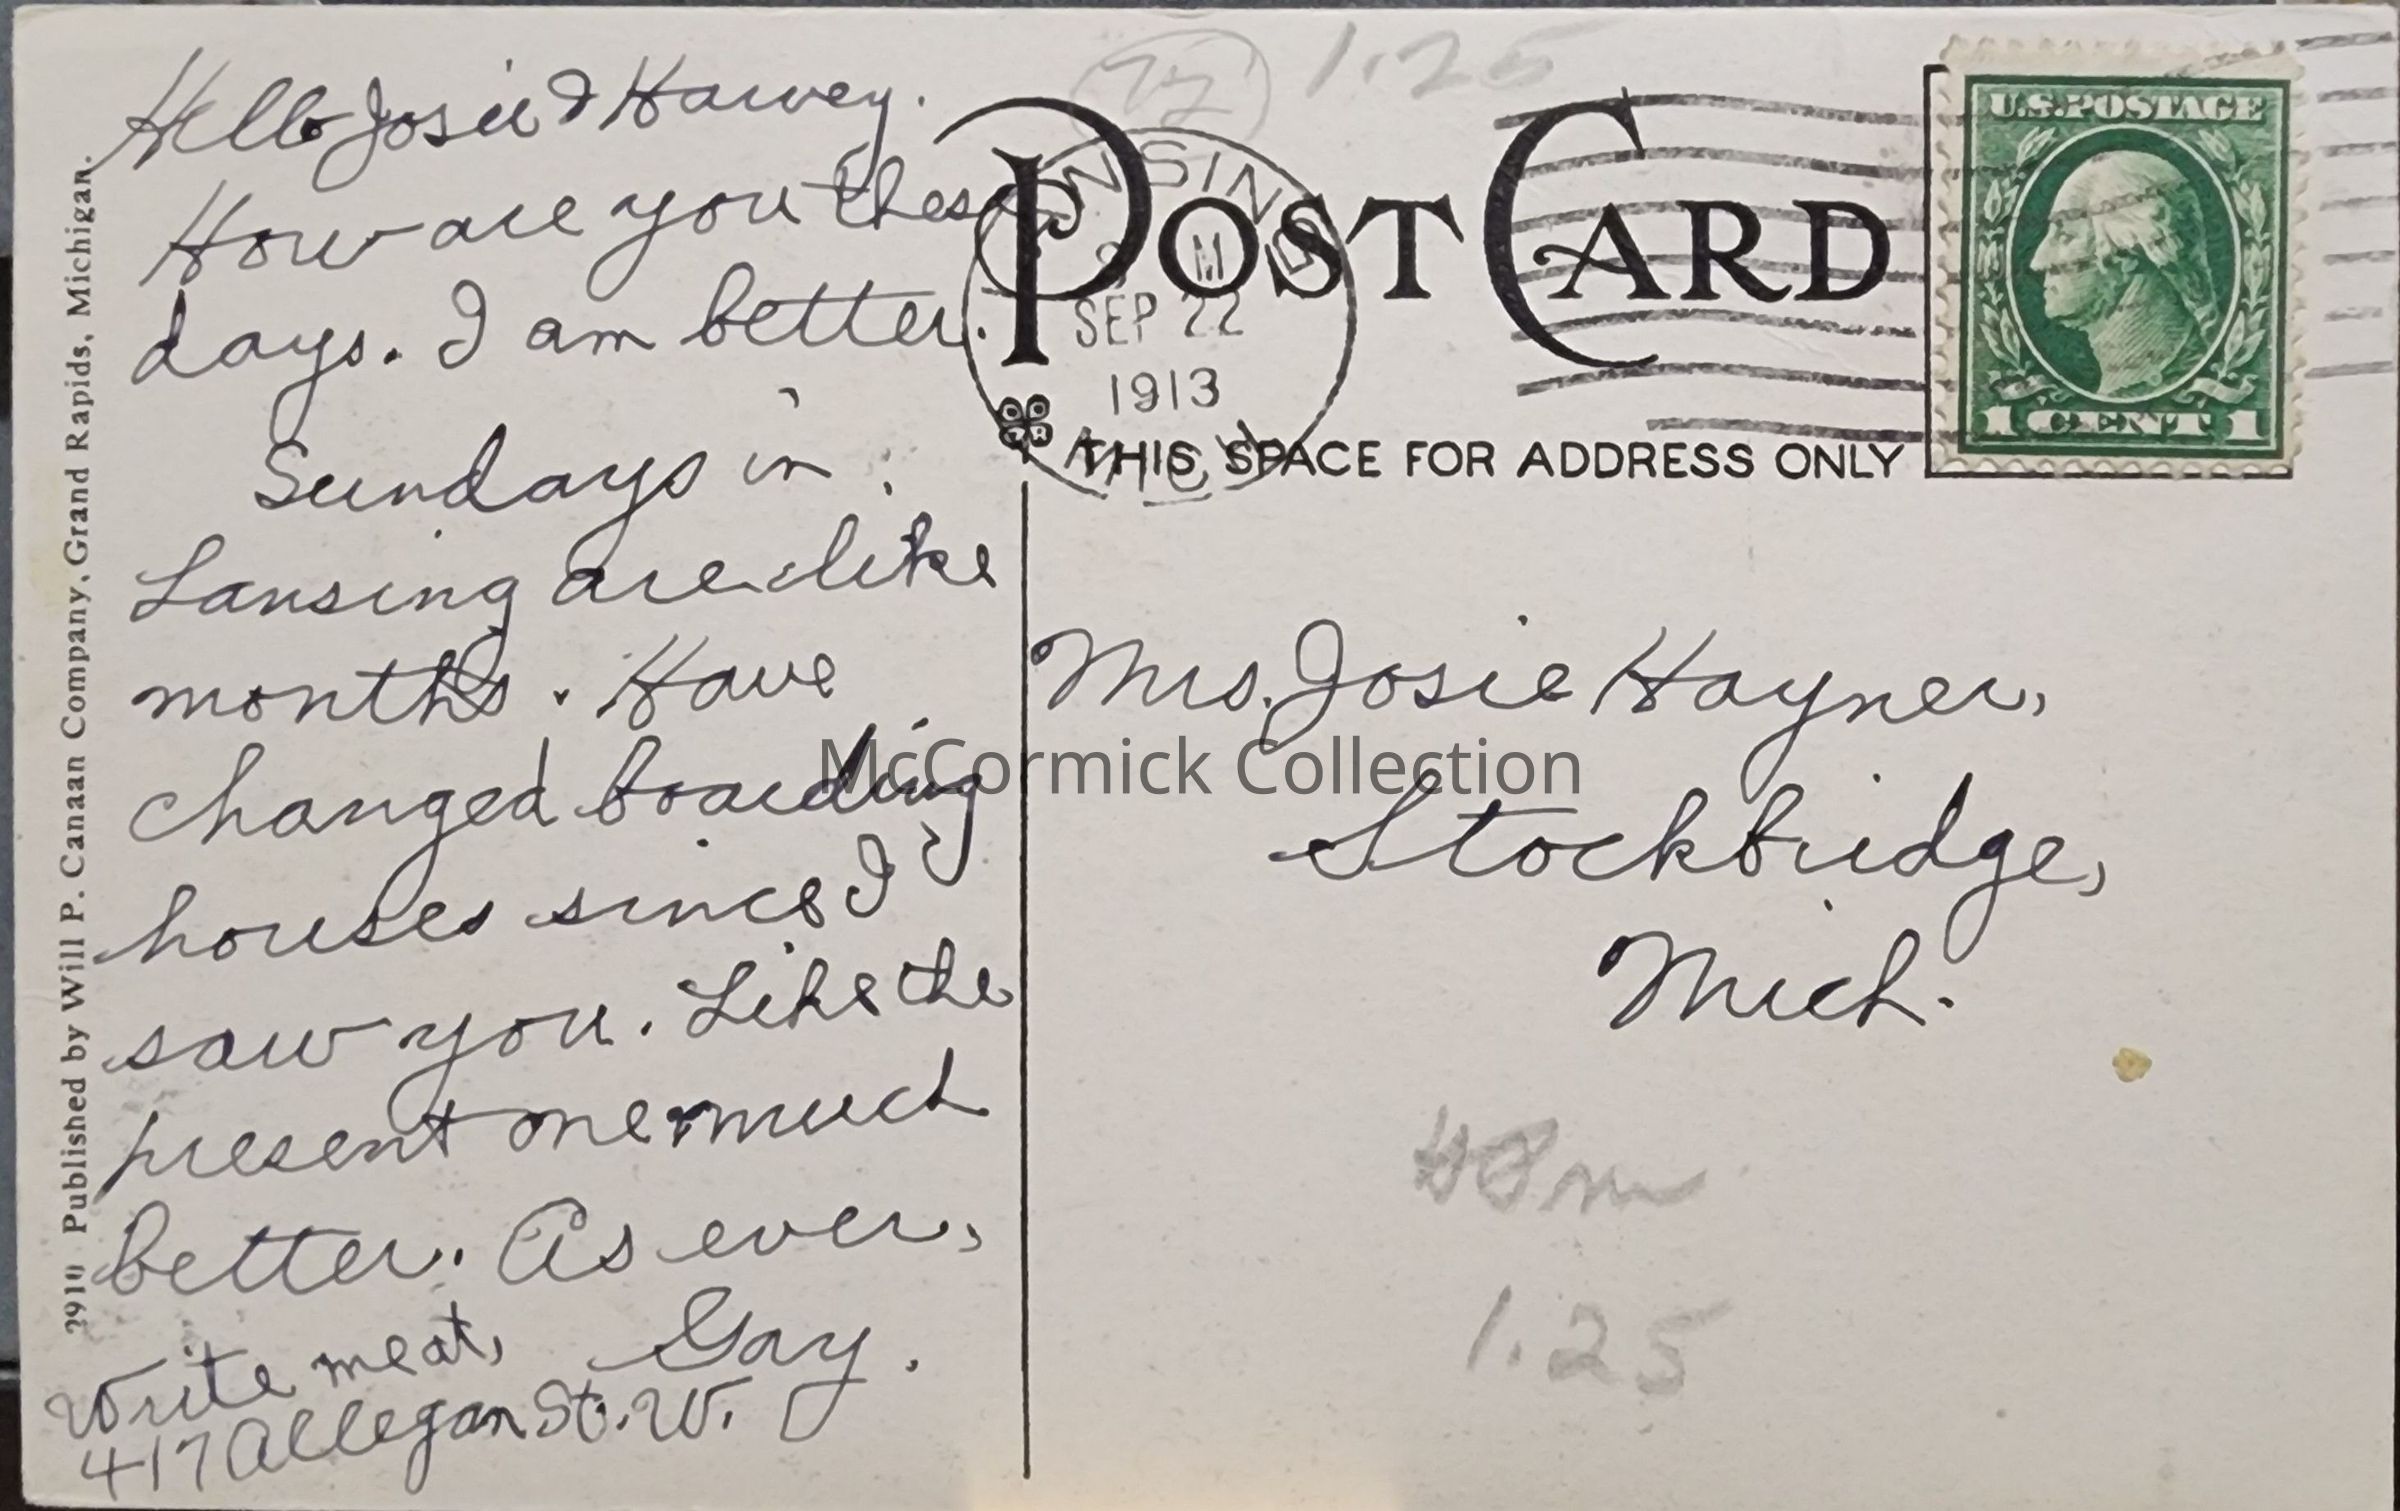 Hello Josie & Harvey.
How are you these
days. I am better.
Sundays in
Lansing are like
months. Have
changed boarding
houses since I
saw you. Like the
present one much
better. As ever,
Gay.
Write me at,
417 Allegan St. W.
2910 Published by Will P. Canaan Company, Grand Rapids, Michigan.
1.25
POST CARD
THIS SPACE FOR ADDRESS ONLY
SEP 22
1913
MICH
U.S. POSTAGE
1 CENT 1
Mrs. Josie Hayner,
Stockbridge,
Mich.
1.25
McCormick Collection